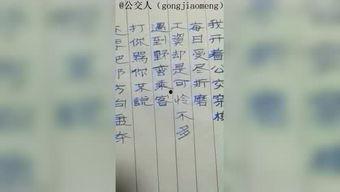 @公交人（gongjiaomeng）
我开着公交穿梭
每日受尽折磨
工资却是可怜不多
遇到野蛮乘客
打你骂你